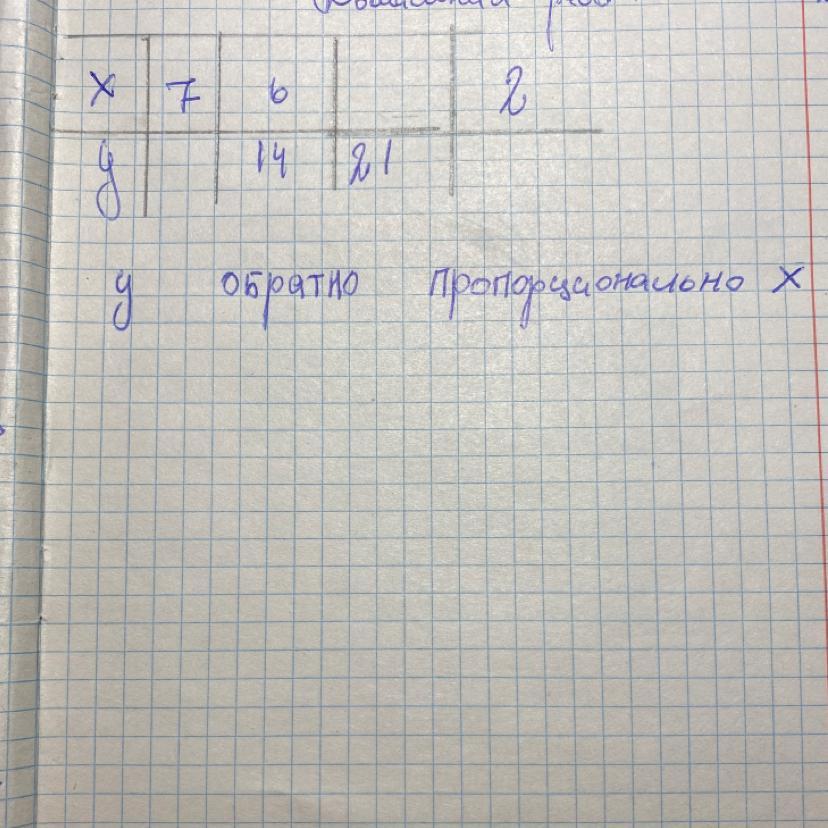 x 7 6 2
y 14 21
y обратно пропорционально x